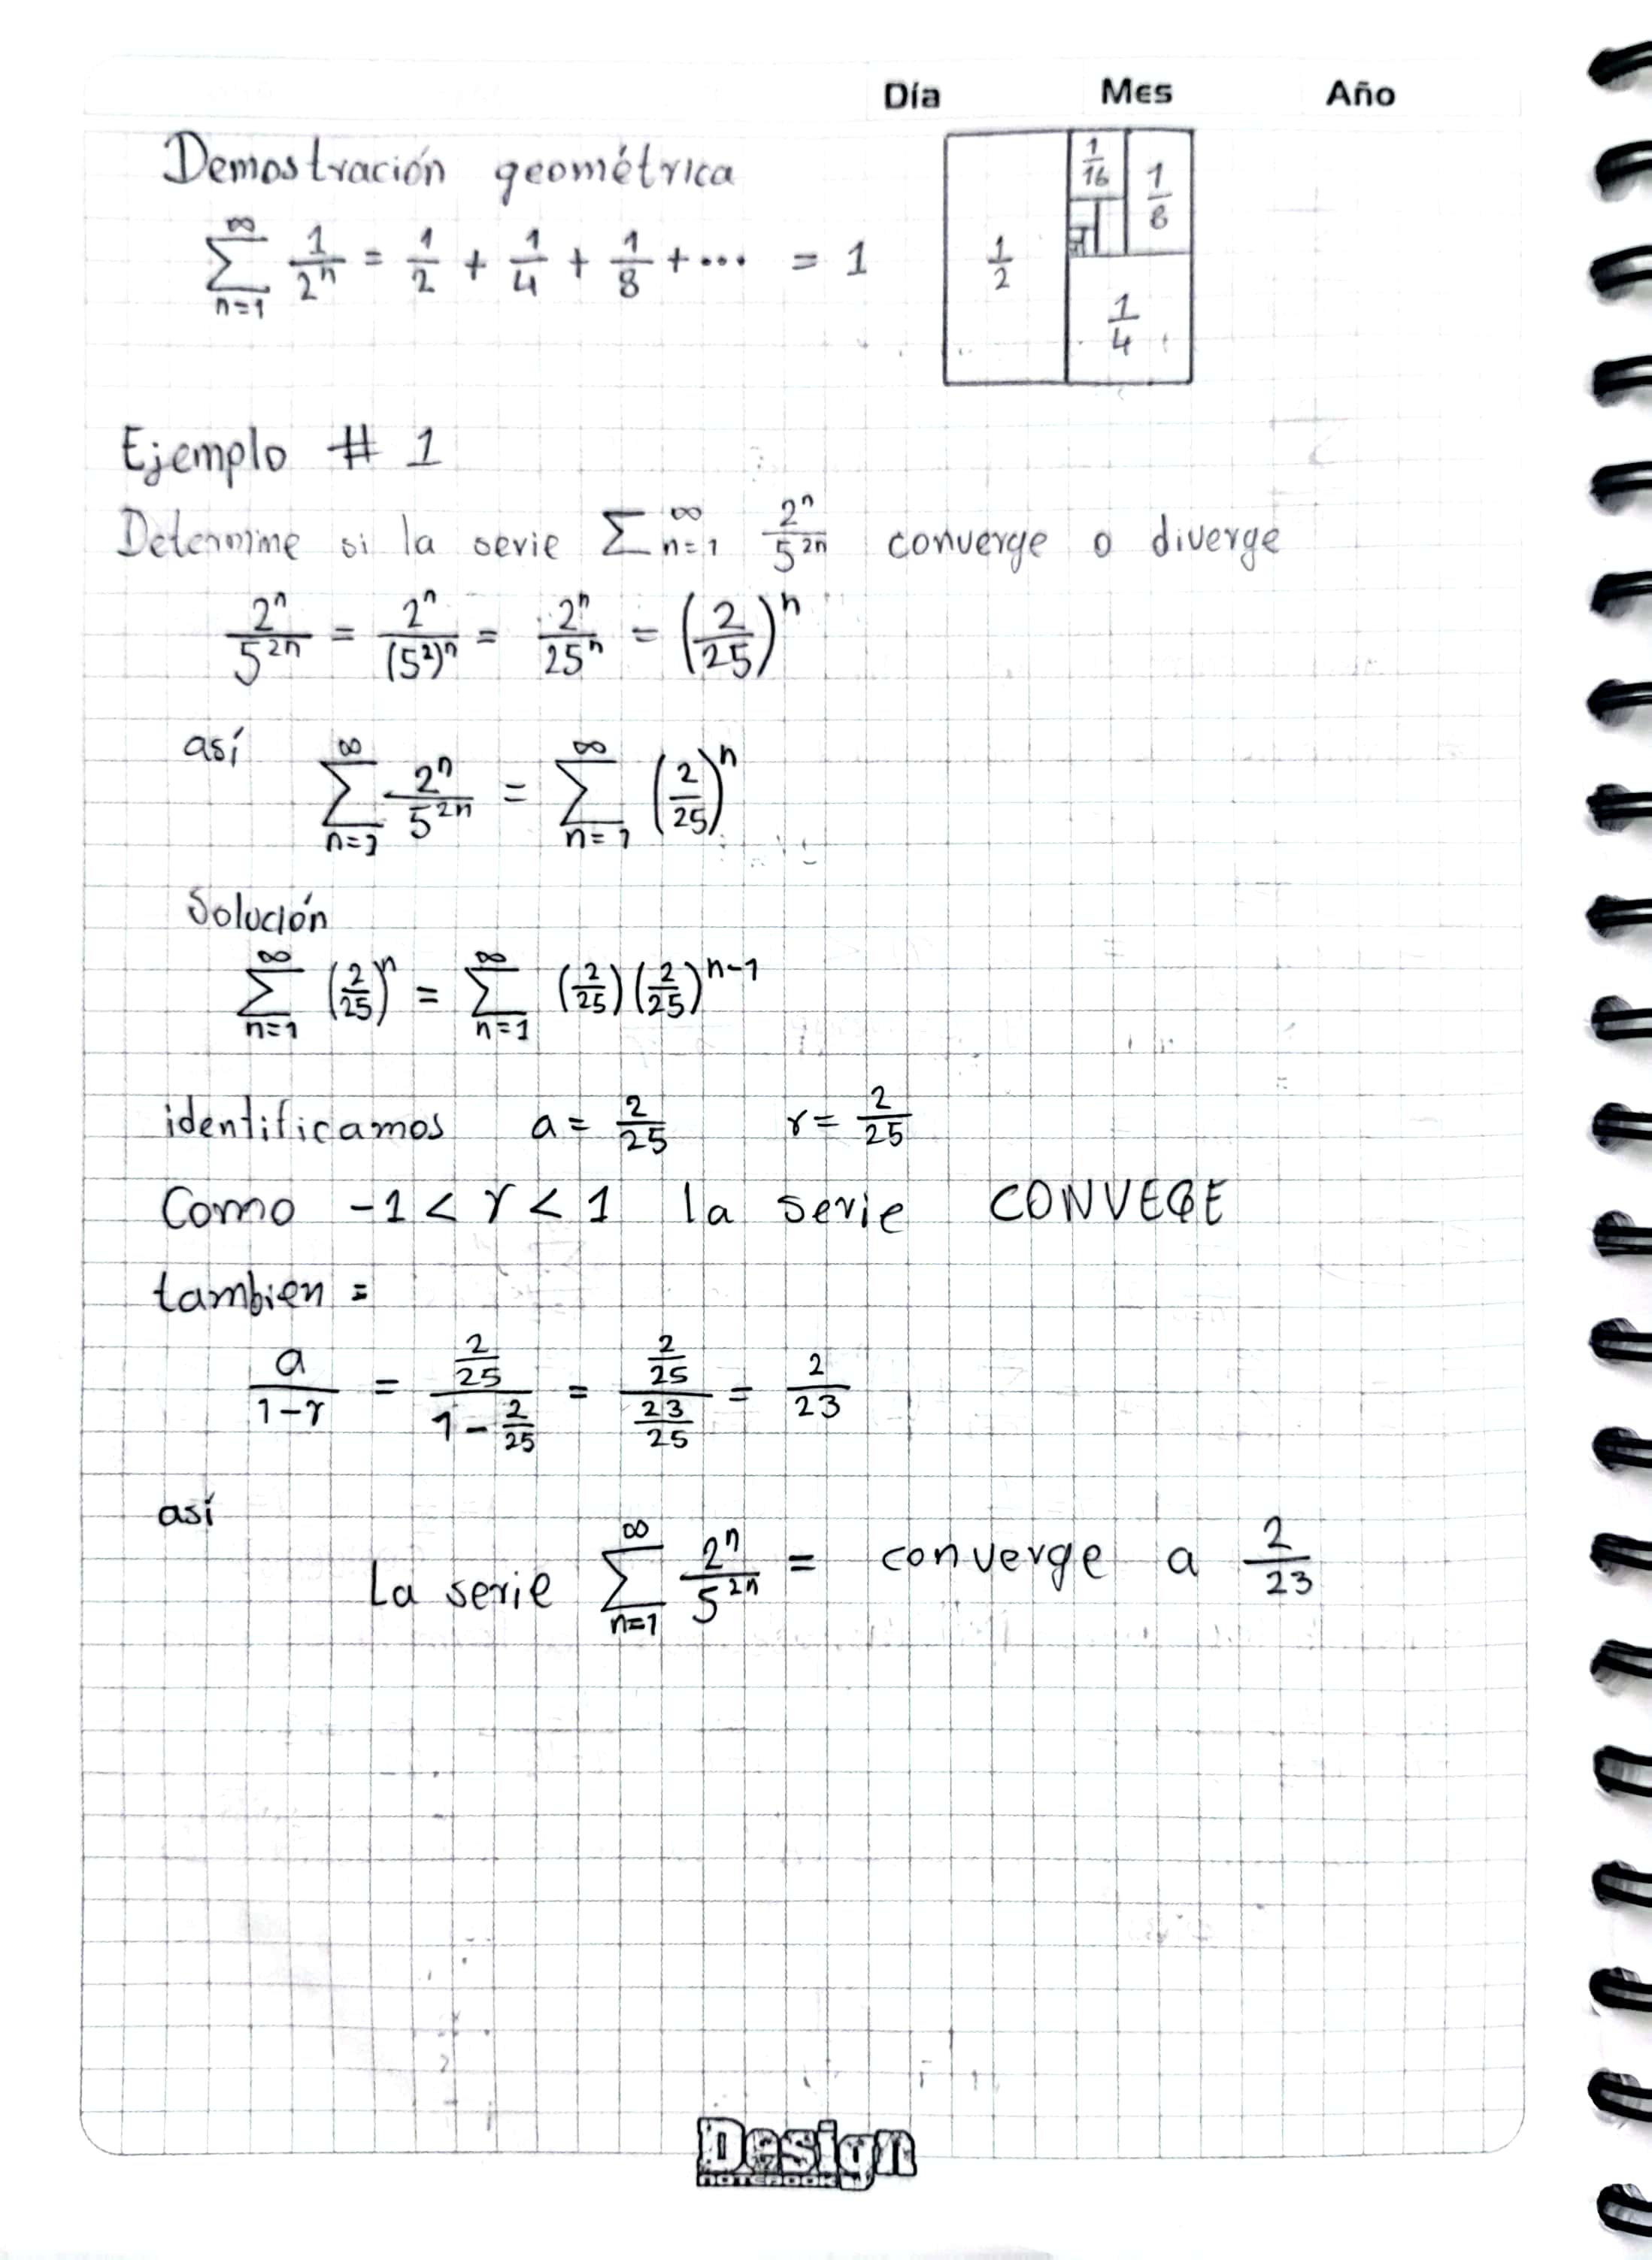 Día Mes Año
Demostración geométrica
∑_{n=1}^{∞} 1/2^n = 1/2 + 1/4 + 1/8 + ... = 1
1/2 1/16 1/8
1/4
Ejemplo # 1
Determine si la serie ∑_{n=1}^{∞} 2^n/5^{2n} converge o diverge
2^n/5^{2n} = 2^n/(5^2)^n = 2^n/25^n = (2/25)^n
así ∑_{n=1}^{∞} 2^n/5^{2n} = ∑_{n=1}^{∞} (2/25)^n
Solución
∑_{n=1}^{∞} (2/25)^n = ∑_{n=1}^{∞} (2/25)(2/25)^{n-1}
identificamos a = 2/25 r = 2/25
Como -1 < r < 1 la serie CONVEGE
tambien =
a/(1-r) = (2/25)/(1 - 2/25) = (2/25)/(23/25) = 2/23
así
La serie ∑_{n=1}^{∞} 2^n/5^{2n} = converge a 2/23
Design
NOTEBOOK